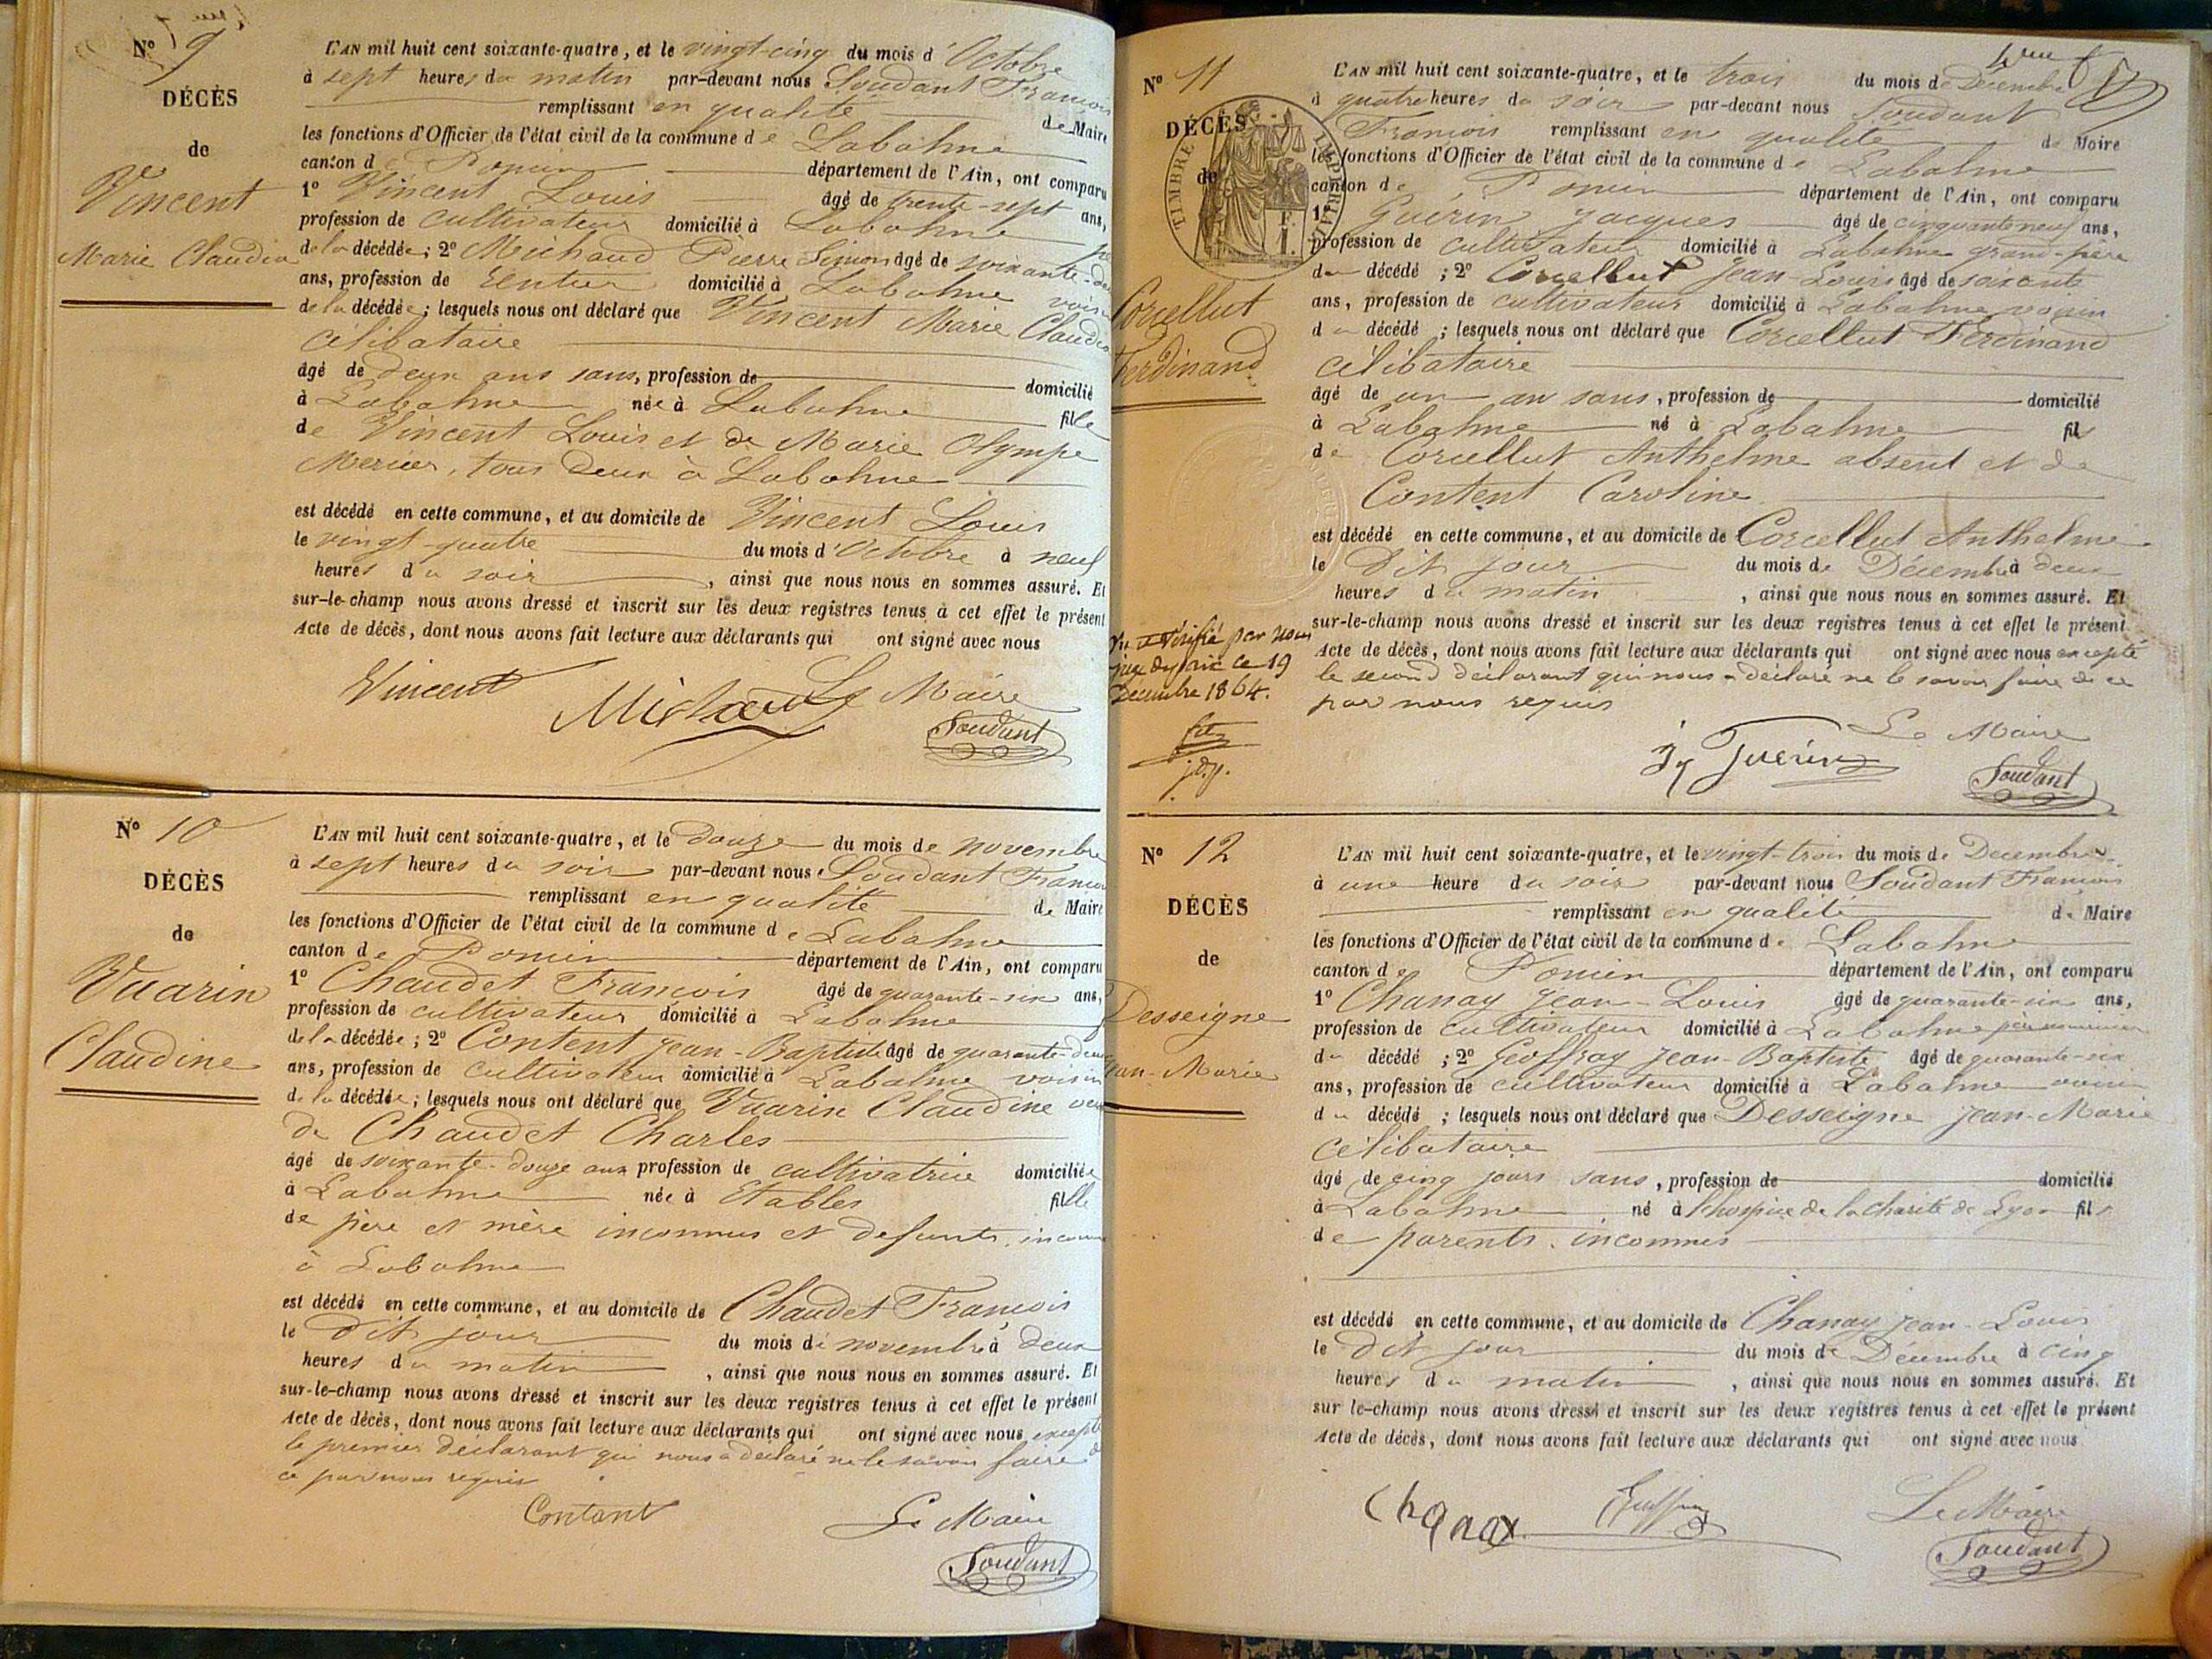 N° 9
DÉCÈS
de
Vincent
Marie Claudia
L'AN mil huit cent soixante-quatre, et le vingt-cinq du mois d'Octobre
à sept heures du matin par-devant nous Soudant François
remplissant en qualité de Maire
les fonctions d'Officier de l'état civil de la commune de Labalme
canton de Poncin département de l'Ain, ont comparu
1° Vincent Louis âgé de trente-sept ans,
profession de cultivateur domicilié à Labalme
de la décédée; 2° Michaud Pierre Simon âgé de soixante-
ans, profession de rentier domicilié à Labalme voisin
de la décédée; lesquels nous ont déclaré que Vincent Marie Claudia
célibataire
âgé de deux ans sans, profession de domicilié
à Labalme née à Labalme fille
de Vincent Louis et de Marie Olympe
Mercier, tous deux à Labalme
est décédé en cette commune, et au domicile de Vincent Louis
le vingt-quatre du mois d'Octobre à neuf
heures du soir, ainsi que nous nous en sommes assuré. Et
sur-le-champ nous avons dressé et inscrit sur les deux registres tenus à cet effet le présent
Acte de décès, dont nous avons fait lecture aux déclarants qui ont signé avec nous
Vincent Michaud Le Maire
Soudant
N° 10
DÉCÈS
de
Vuarin
Claudine
L'AN mil huit cent soixante-quatre, et le douze du mois de novembre
à sept heures du soir par-devant nous Soudant François
remplissant en qualité de Maire
les fonctions d'Officier de l'état civil de la commune de Labalme
canton de Poncin département de l'Ain, ont comparu
1° Chaudet François âgé de quarante-six ans,
profession de cultivateur domicilié à Labalme
de la décédée; 2° Content Jean-Baptiste âgé de quarante-deux
ans, profession de cultivateur domicilié à Labalme voisin
de la décédée; lesquels nous ont déclaré que Vuarin Claudine veu
de Chaudet Charles
âgé de soixante-douze ans profession de cultivatrice domiciliée
à Labalme née à Etables fille
de père et mère inconnus et defunts
à Labalme
est décédé en cette commune, et au domicile de Chaudet François
le dit jour du mois de novembre à deux
heures du matin, ainsi que nous nous en sommes assuré. Et
sur-le-champ nous avons dressé et inscrit sur les deux registres tenus à cet effet le présent
Acte de décès, dont nous avons fait lecture aux déclarants qui ont signé avec nous excepté
le premier déclarant qui nous a déclaré ne le savoir faire de
ce par nous requis
Contant Le Maire
Soudant
N° 11
DÉCÈS
de
TIMBRE IMPÉRIAL
Corcellut
Ferdinand
L'AN mil huit cent soixante-quatre, et le trois du mois de Décembre
à quatre heures du soir par-devant nous Soudant
François remplissant en qualité de Maire
les fonctions d'Officier de l'état civil de la commune de Labalme
canton de Poncin département de l'Ain, ont comparu
1° Guérin Jacques âgé de cinquante neuf ans,
profession de cultivateur domicilié à Labalme grand-père
du décédé; 2° Corcellut Jean-Louis âgé de soixante
ans, profession de cultivateur domicilié à Labalme voisin
du décédé; lesquels nous ont déclaré que Corcellut Ferdinand
célibataire
âgé de un an sans, profession de domicilié
à Labalme né à Labalme fils
de Corcellut Anthelme absent et de
Content Caroline
est décédé en cette commune, et au domicile de Corcellut Anthelme
le dit jour du mois de Décembre à deux
heures du matin, ainsi que nous nous en sommes assuré. Et
sur-le-champ nous avons dressé et inscrit sur les deux registres tenus à cet effet le présent
Acte de décès, dont nous avons fait lecture aux déclarants qui ont signé avec nous excepté
le second déclarant qui nous a déclaré ne le savoir faire de ce
par nous requis
Vu et vérifié par nous
juge de paix ce 19
Décembre 1864.
j.d.p.
Le Maire
Jq Guérin Soudant
N° 12
DÉCÈS
de
Desseigne
Jean-Marie
L'AN mil huit cent soixante-quatre, et le vingt-trois du mois de Decembre
à une heure du soir par-devant nous Soudant François
remplissant en qualité de Maire
les fonctions d'Officier de l'état civil de la commune de Labalme
canton de Poncin département de l'Ain, ont comparu
1° Chanay Jean-Louis âgé de quarante-six ans,
profession de cultivateur domicilié à Labalme père nourricier
du décédé; 2° Geoffray Jean-Baptiste âgé de quarante-six
ans, profession de cultivateur domicilié à Labalme voisin
du décédé; lesquels nous ont déclaré que Desseigne Jean-Marie
célibataire
âgé de cinq jours sans, profession de domicilié
à Labalme né à l'hospice de la charité de Lyon fils
de parents inconnus
est décédé en cette commune, et au domicile de Chanay Jean-Louis
le dit jour du mois de Décembre à cinq
heures du matin, ainsi que nous nous en sommes assuré. Et
sur le-champ nous avons dressé et inscrit sur les deux registres tenus à cet effet le présent
Acte de décès, dont nous avons fait lecture aux déclarants qui ont signé avec nous
Chanay Le Maire
Soudant